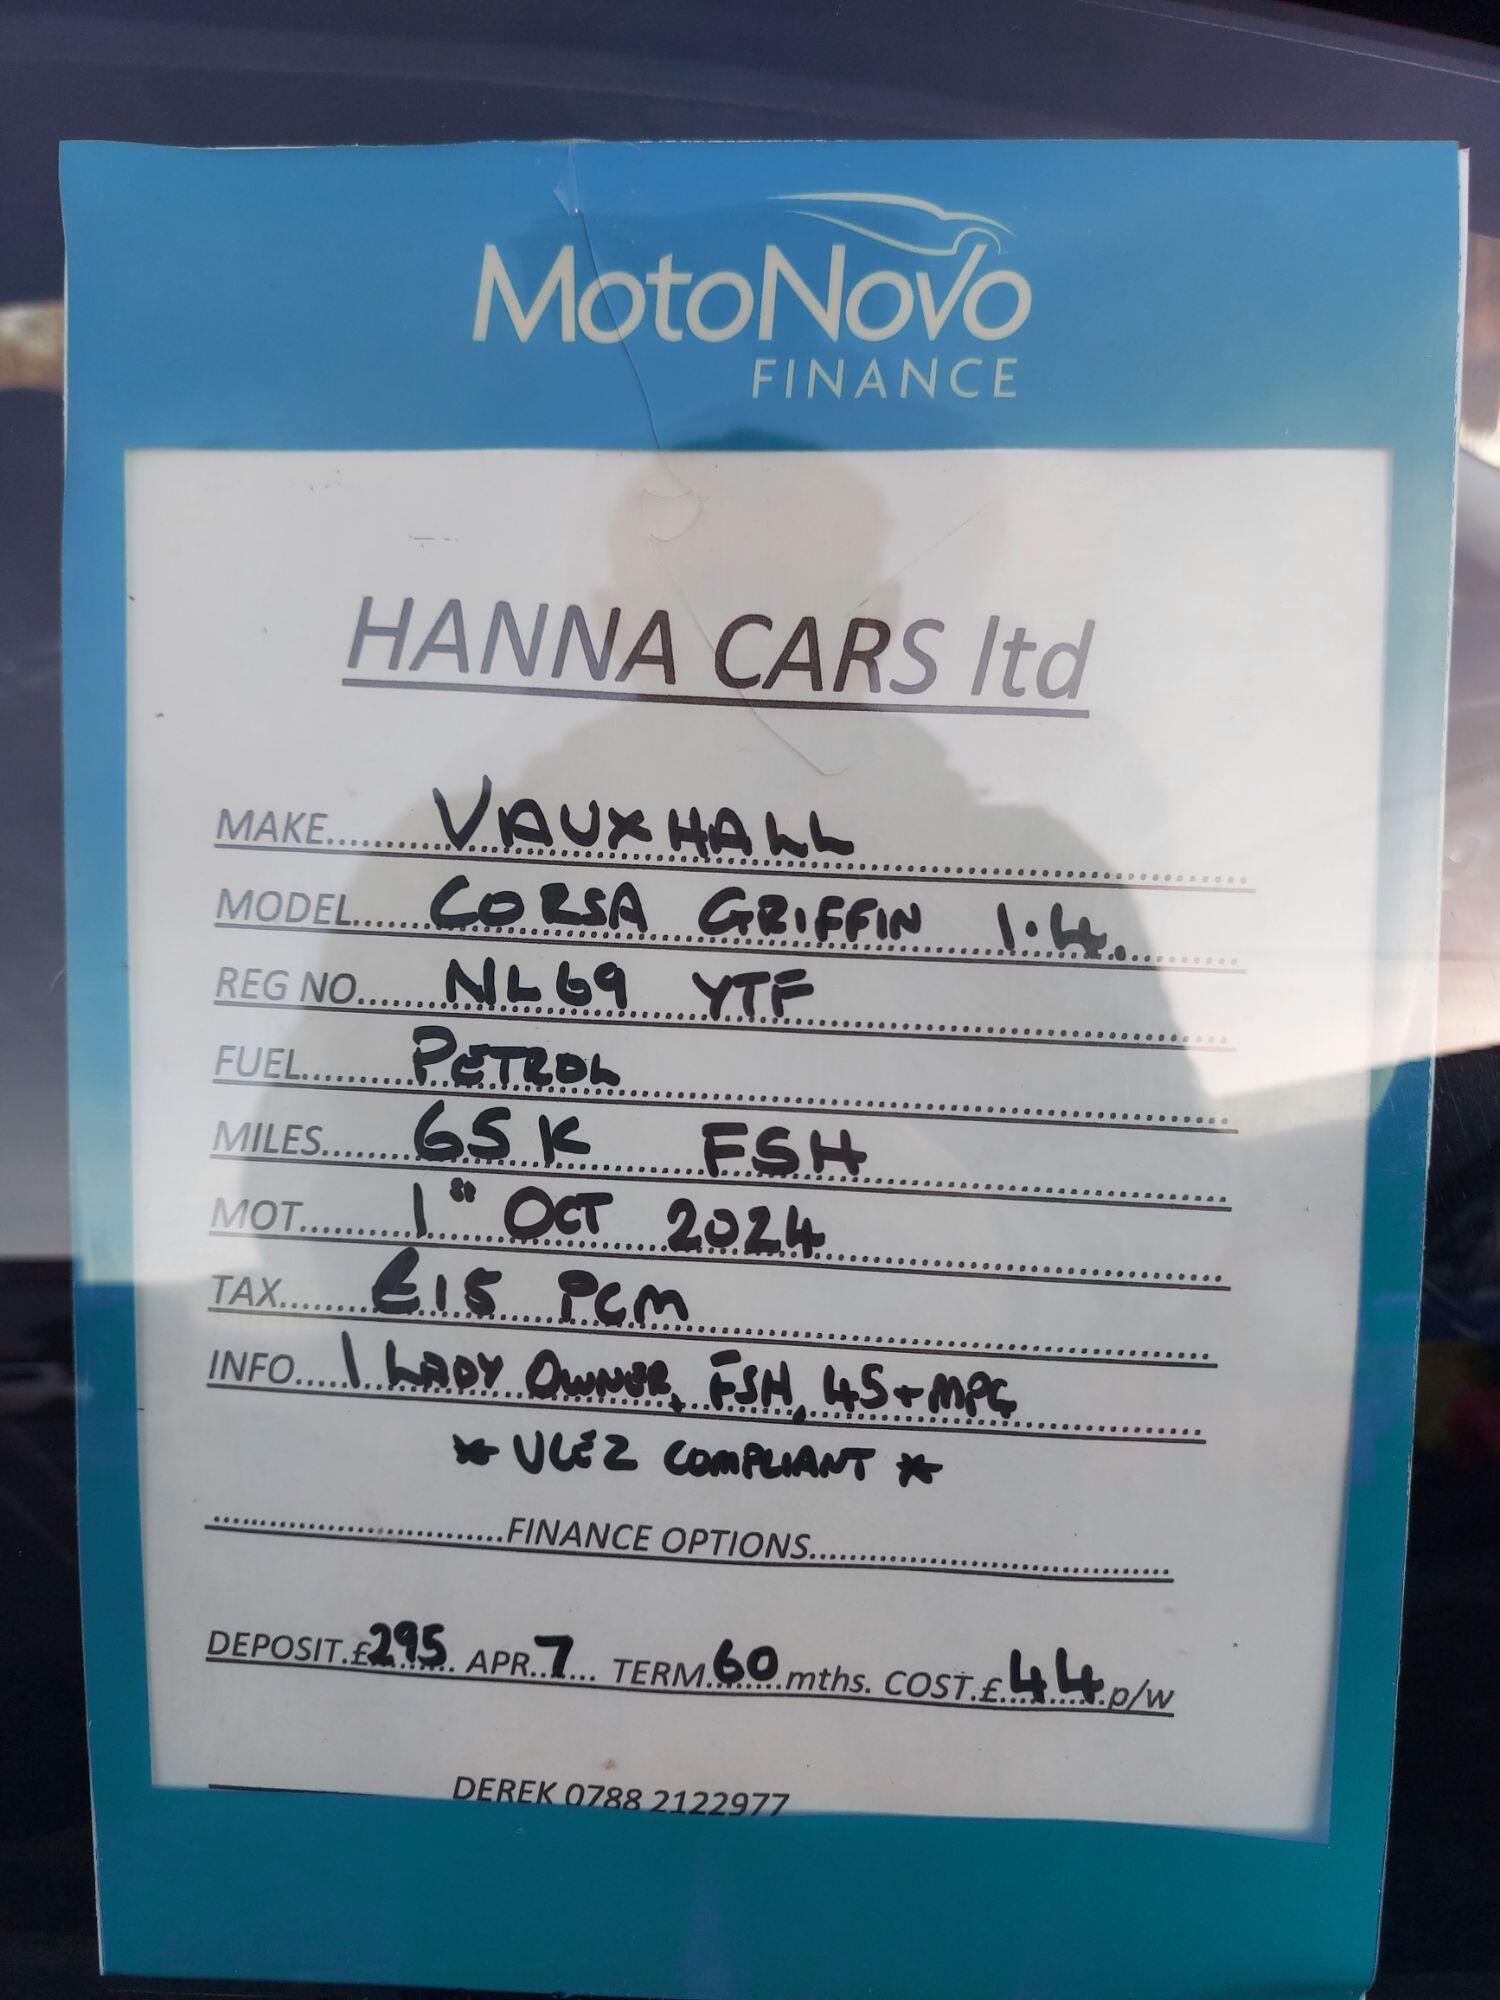 MotoNovo
FINANCE
HANNA CARS ltd
MAKE......VAUXHALL
MODEL.....CORSA GRIFFIN 1.4.
REG NO....NL69 YTF
FUEL......PETROL
MILES.....65K FSH
MOT.......1st OCT 2024
TAX.......£15 PCM
INFO.....1 LADY OWNER, FSH, 45+MPG
* ULEZ COMPLIANT *
FINANCE OPTIONS
DEPOSIT.£295 APR..7... TERM.60 mths. COST.£44 p/w
DEREK 0788 2122977